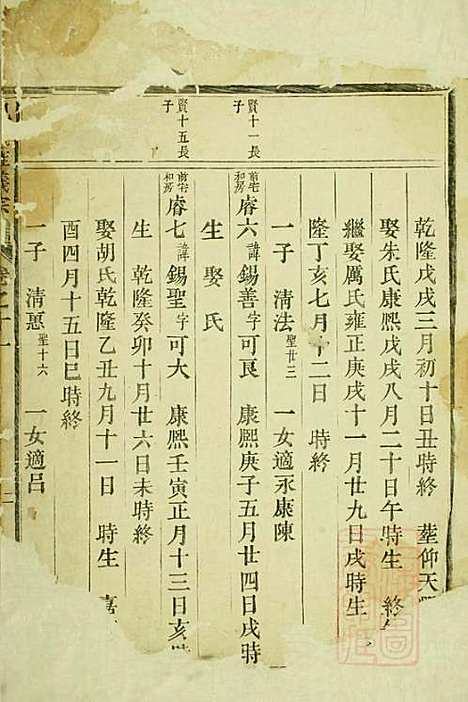 乾隆戊戌三月初十日丑時終 塟仰天
娶朱氏康熙戊戌八月二十日午時生 終
繼娶厲氏雍正庚戌十一月廿九日戌時生
隆丁亥七月十二日 時終
一子 清法 聖廿三 一女適永康陳
賢十一長子
前宅和房 睿六 諱錫善字可良 康熙庚子五月廿四日戌時
生 娶 氏
賢十五長子
前宅和房 睿七 諱錫聖字可大 康熙壬寅正月十三日亥時
生 乾隆癸卯十月廿六日未時終
娶胡氏乾隆乙丑九月十一日 時生 嘉
酉四月十五日巳時終
一子 清惠 聖十六 一女適呂
義宗 卷之十一 二